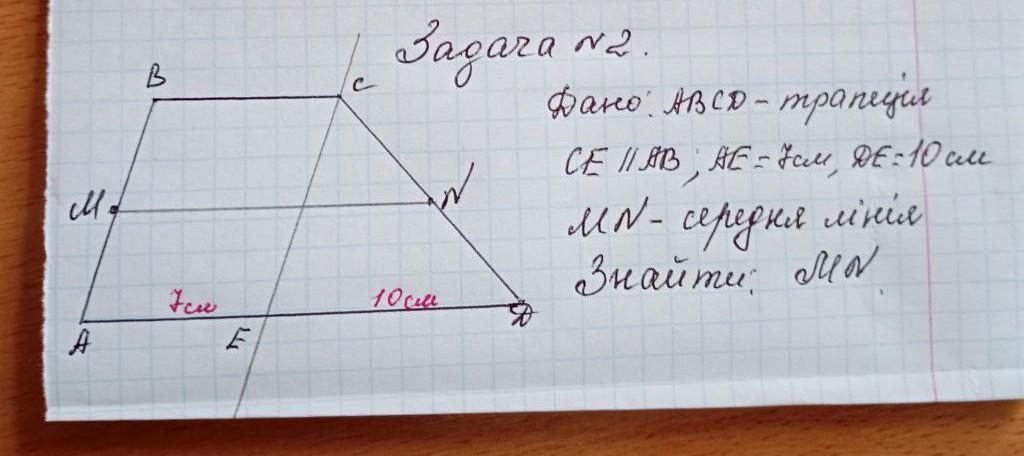 Задача N2.
Дано: ABCD - трапеція
CE || AB; AE = 7см, DE = 10см
MN - середня лінія
Знайти: MN.
B
C
M
N
7см
10см
A
E
D